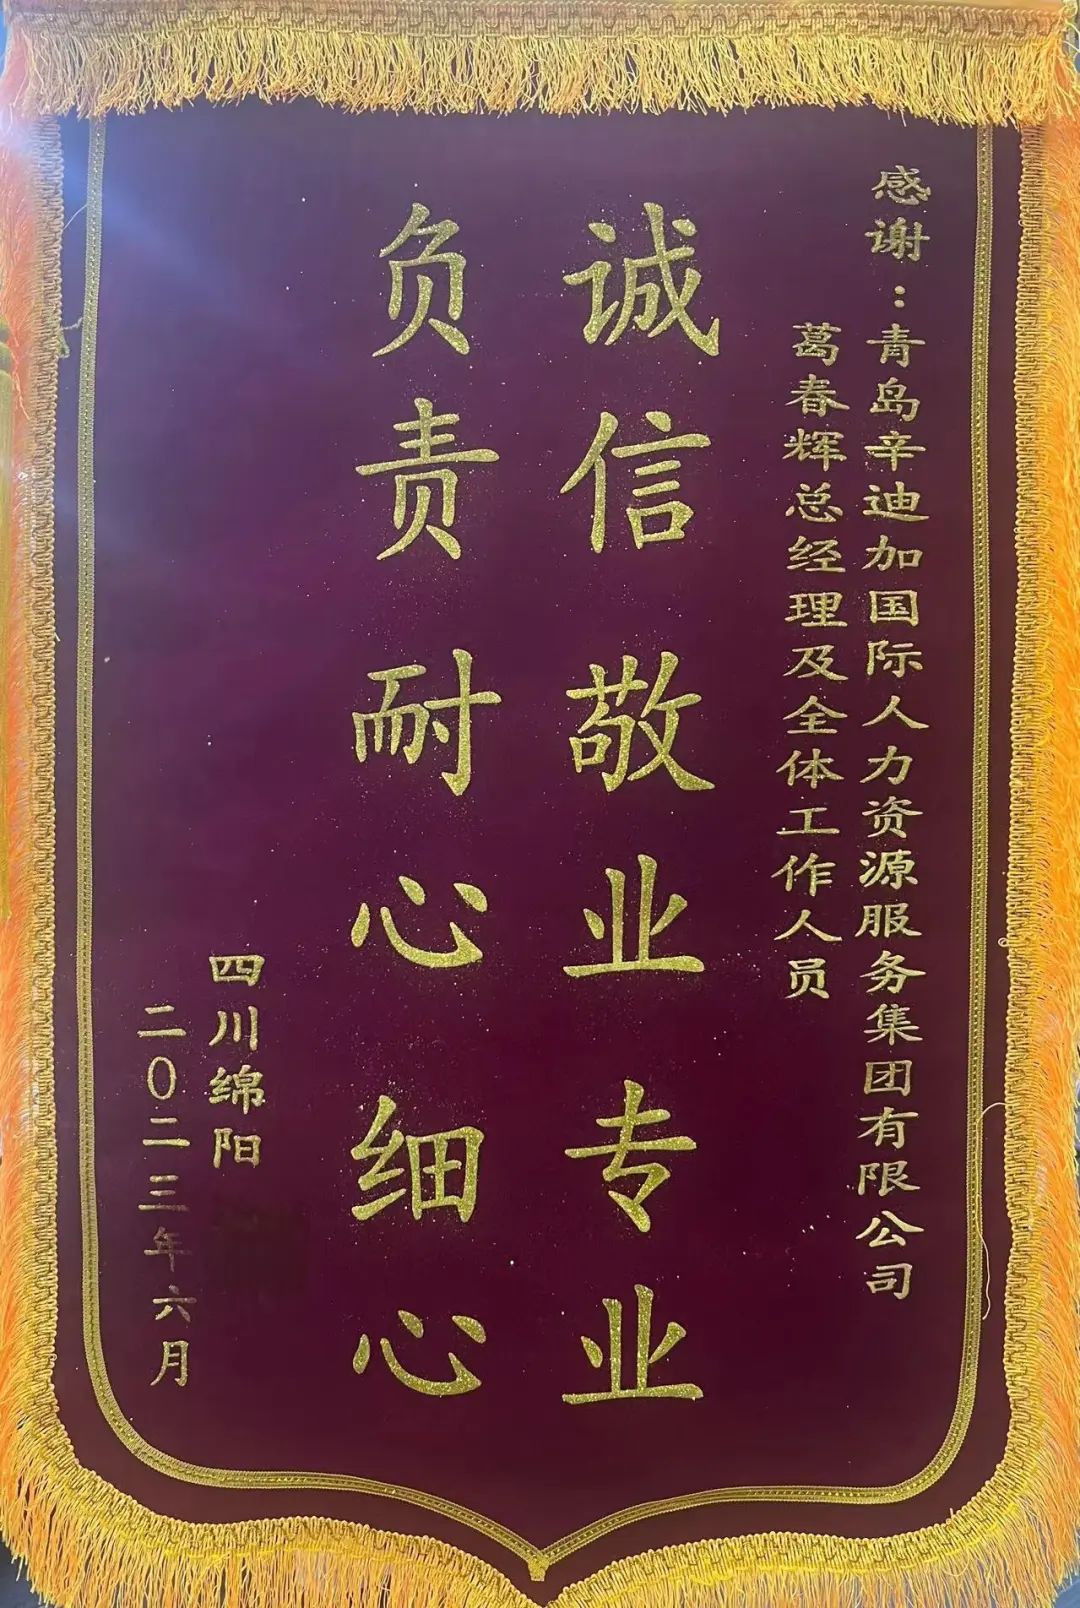 感谢：青岛辛迪加国际人力资源服务集团有限公司
葛春辉总经理及全体工作人员
诚信敬业专业
负责耐心细心
四川绵阳
二〇二三年六月